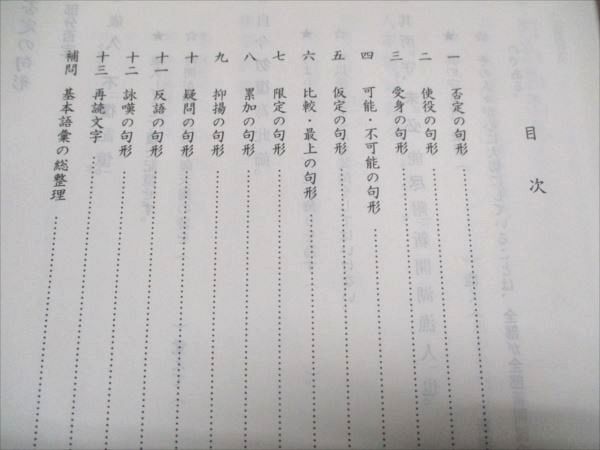 目次
一 否定の句形
二 使役の句形
三 受身の句形
四 可能・不可能の句形
五 仮定の句形
六 比較・最上の句形
七 限定の句形
八 累加の句形
九 抑揚の句形
十 疑問の句形
十一 反語の句形
十二 詠嘆の句形
十三 再読文字
補問 基本語彙の総整理